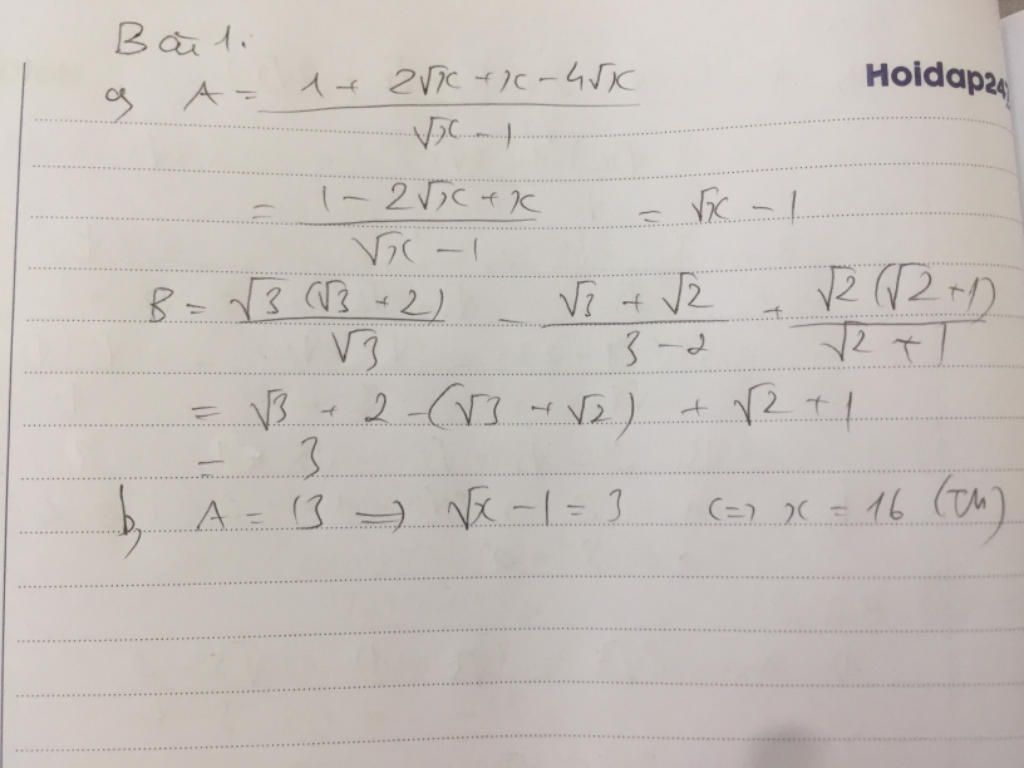 Bài 1:
Hoidap247
a, A = \frac{1 + 2\sqrt{x} + x - 4\sqrt{x}}{\sqrt{x} - 1}
= \frac{1 - 2\sqrt{x} + x}{\sqrt{x} - 1} = \sqrt{x} - 1
B = \frac{\sqrt{3}(\sqrt{3} + 2)}{\sqrt{3}} - \frac{\sqrt{3} + \sqrt{2}}{3 - 2} + \frac{\sqrt{2}(\sqrt{2} + 1)}{\sqrt{2} + 1}
= \sqrt{3} + 2 - (\sqrt{3} + \sqrt{2}) + \sqrt{2} + 1
= 3
b, A = B => \sqrt{x} - 1 = 3 <=> x = 16 (TM)